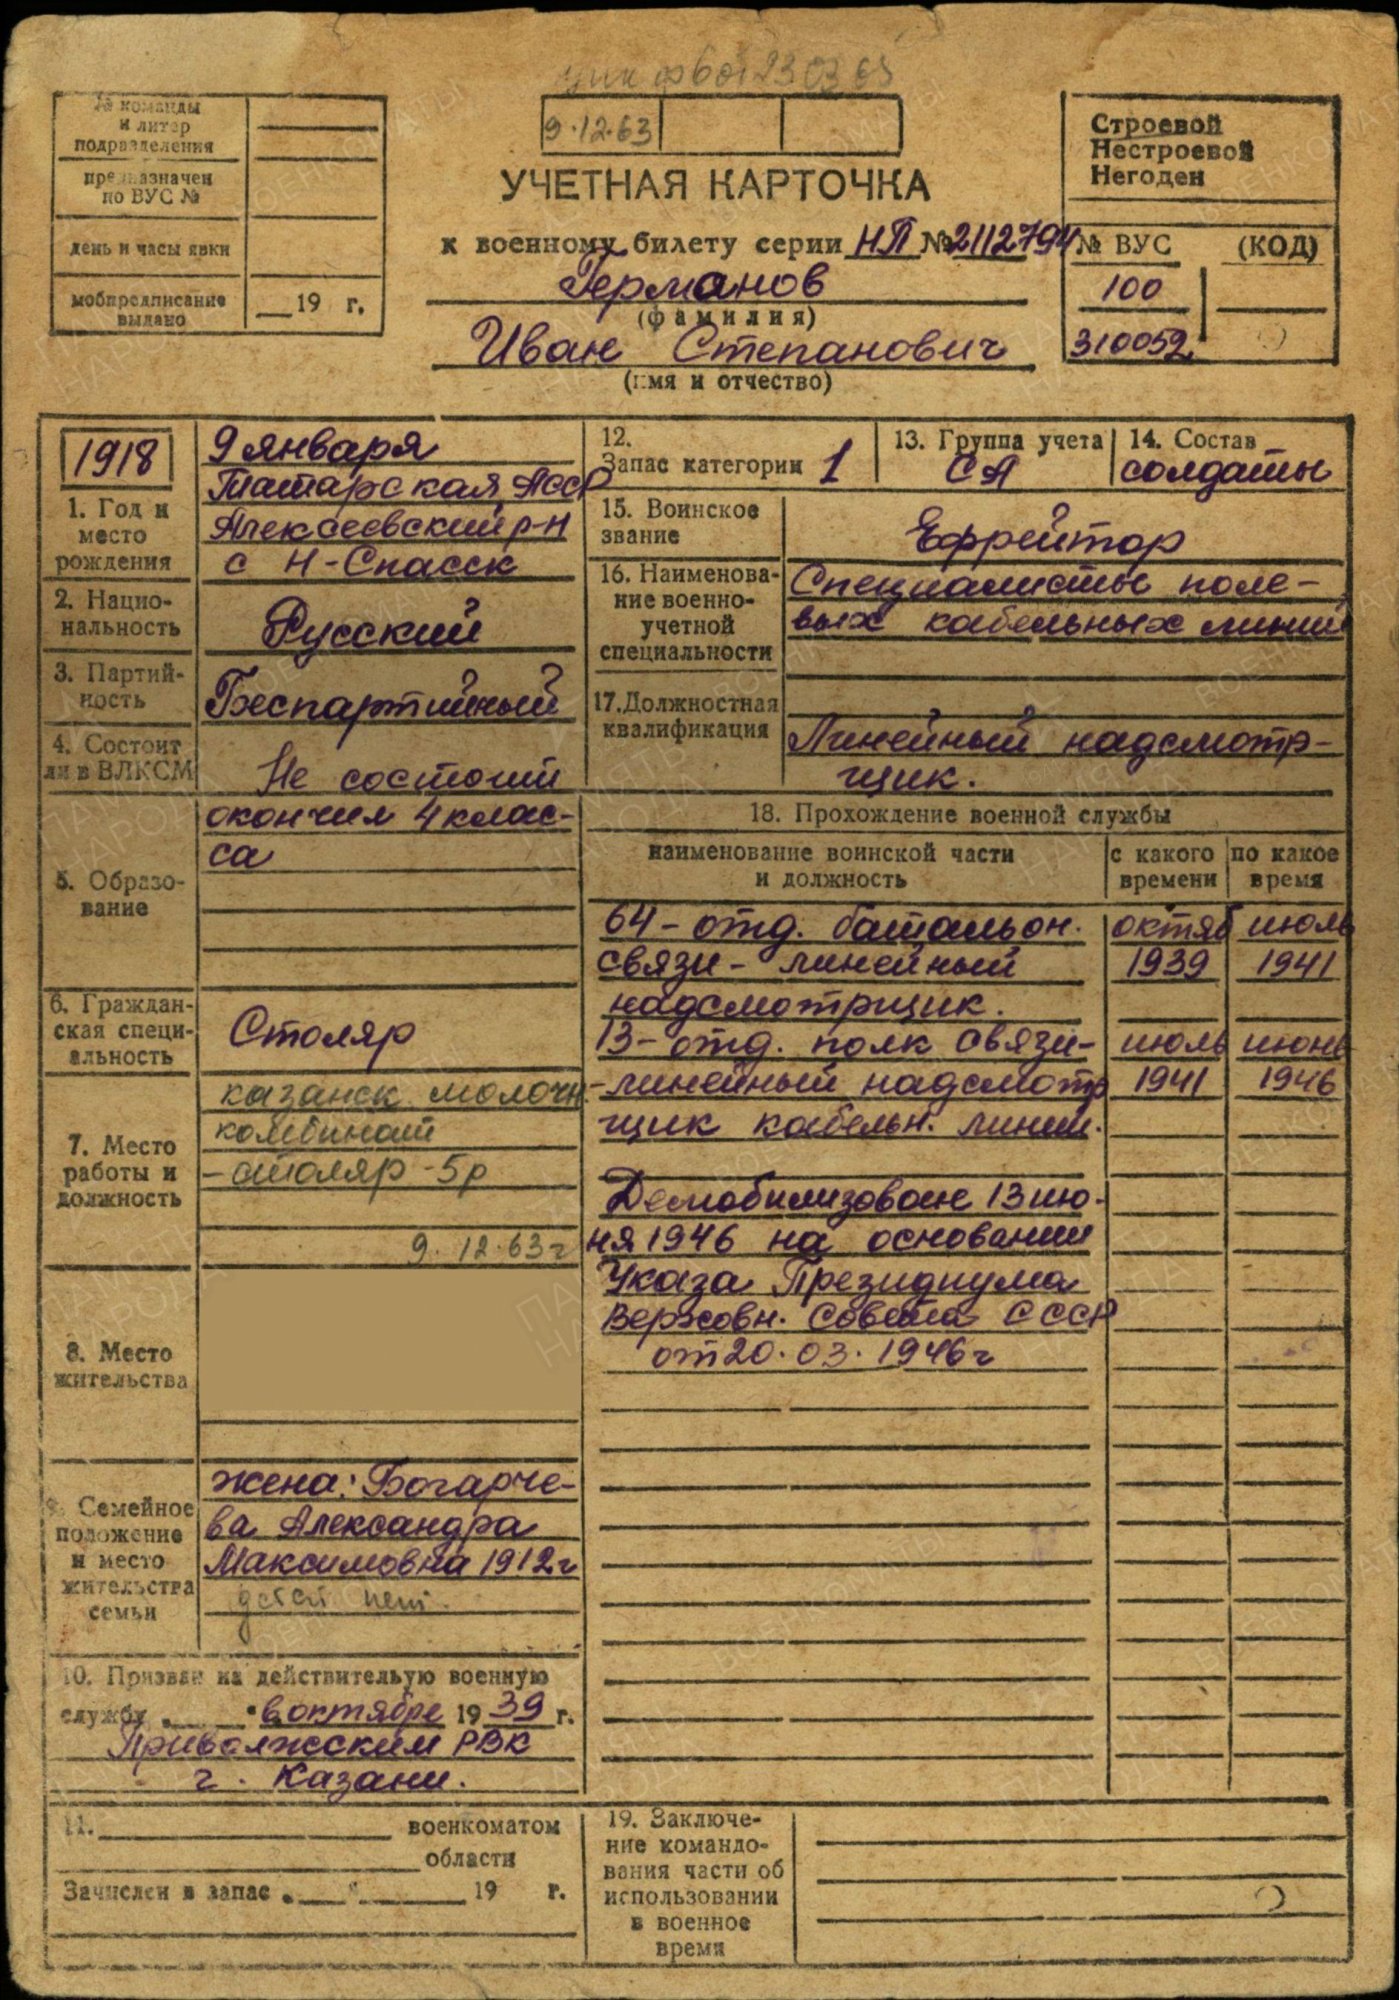 9.12.63
№ команды
и литер
подразделения
предназначен
по ВУС №
день и часы явки
мобпредписание
выдано
19 г.
Строевой
Нестроевой
Негоден
УЧЕТНАЯ КАРТОЧКА
к военному билету серии НП № 2112794
Германов
(фамилия)
Иван Степанович
(имя и отчество)
№ ВУС (КОД)
100
310052
1918
1. Год и
место
рождения
9 января
Татарская АССР
Алексеевский р-н
с Н-Спасск
2. Нацио-
нальность
Русский
3. Партий-
ность
Беспартийный
4. Состоит
ли в ВЛКСМ
Не состоит
5. Образо-
вание
окончил 4 клас-
са
6. Граждан-
ская специ-
альность
Столяр
7. Место
работы и
должность
казанск. молочн
комбинат
- столяр - 5р
9.12.63г
8. Место
жительства
9. Семейное
положение
и место
жительства
семьи
жена: Богарче-
ва Александра
Максимовна 1912г
детей нет.
10. Призван на действительую военную
службу " " в октябре 1939 г.
Приволжским РВК
г. Казани.
11. военкоматом
области
Зачислен в запас „ " 19 г.
12.
Запас категории 1
13. Группа учета
СА
14. Состав
солдаты
15. Воинское
звание
Ефрейтор
16. Наименова-
ние военно-
учетной
специальности
Специалисты поле-
вых кабельных линий
17. Должностная
квалификация
Линейный надсмотр-
щик.
18. Прохождение военной службы
наименование воинской части
и должность
с какого
времени
по какое
время
64 - отд. батальон. октяб июль
связи - линейный 1939 1941
надсмотрщик.
13 - отд. полк связи - июль июнь
- линейный надсмотр 1941 1946
щик кабельн. линий.
Демобилизован 13 ию-
ня 1946 на основании
Указа Президиума
Верховн. Совета СССР
от 20.03.1946г
19. Заключе-
ние командо-
вания части об
использовании
в военное
время